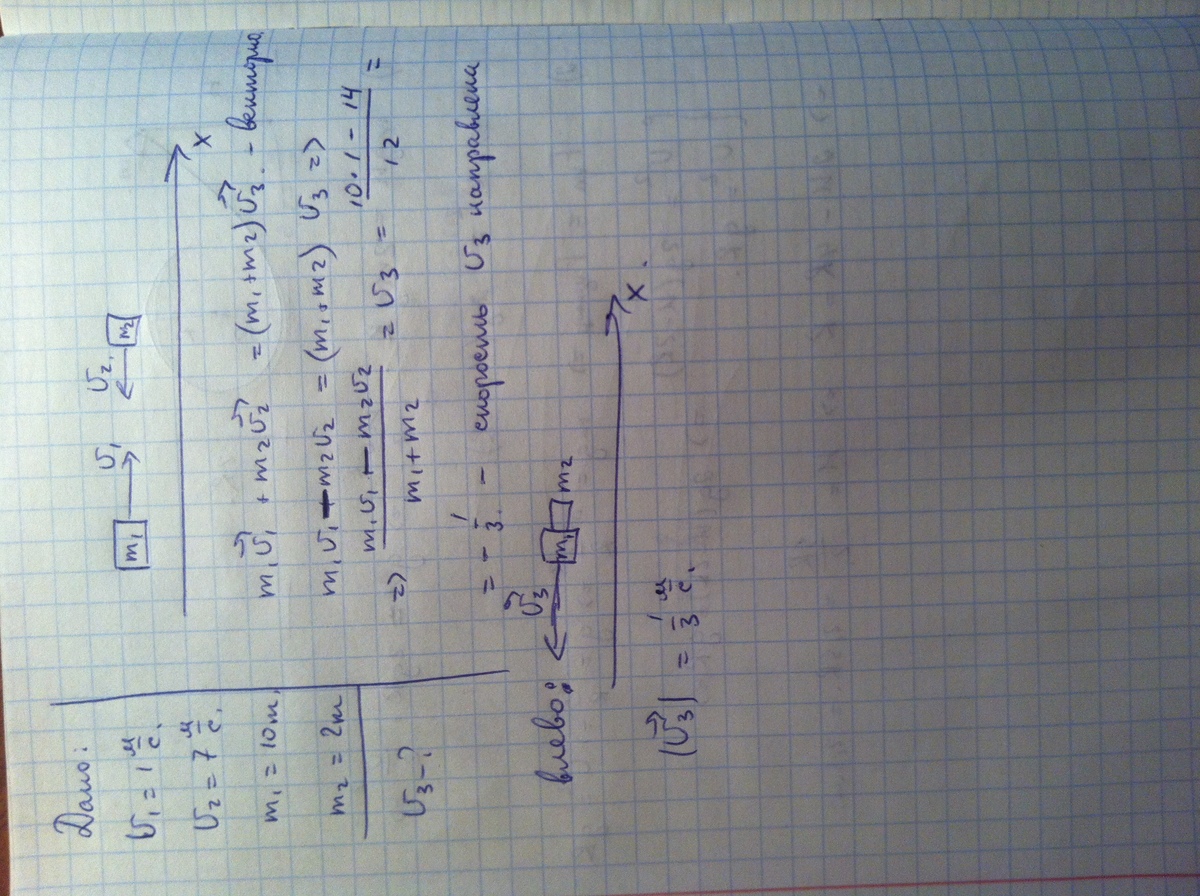 Дано:
υ₁ = 1 м/с.
υ₂ = 7 м/с.
m₁ = 10m,
m₂ = 2m
υ₃ - ?
m₁ υ₁ υ₂. m₂
x
m₁υ⃗₁ + m₂υ⃗₂ = (m₁+m₂)υ⃗₃. - векторно.
m₁υ₁ - m₂υ₂ = (m₁+m₂) υ₃ =>
=> (m₁υ₁ - m₂υ₂)/(m₁+m₂) = υ₃ = (10·1 - 14)/12 =
= - 1/3. - скорость υ₃ направлена
влево:
υ⃗₃ m₁ m₂
x.
|υ⃗₃| = 1/3 м/с.